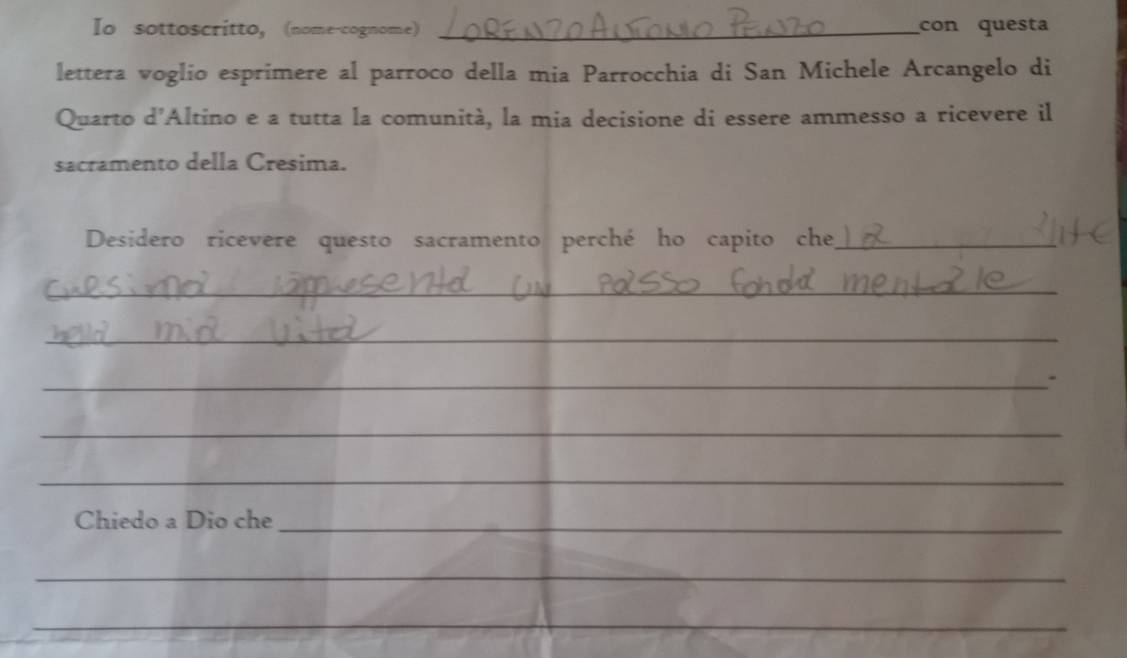 Io sottoscritto, (nome-cognome) LORENZO ANTONIO PENZO con questa
lettera voglio esprimere al parroco della mia Parrocchia di San Michele Arcangelo di
Quarto d'Altino e a tutta la comunità, la mia decisione di essere ammesso a ricevere il
sacramento della Cresima.
Desidero ricevere questo sacramento perché ho capito che la
cresima rappresenta un passo fondamentale
nella mia vita
Chiedo a Dio che